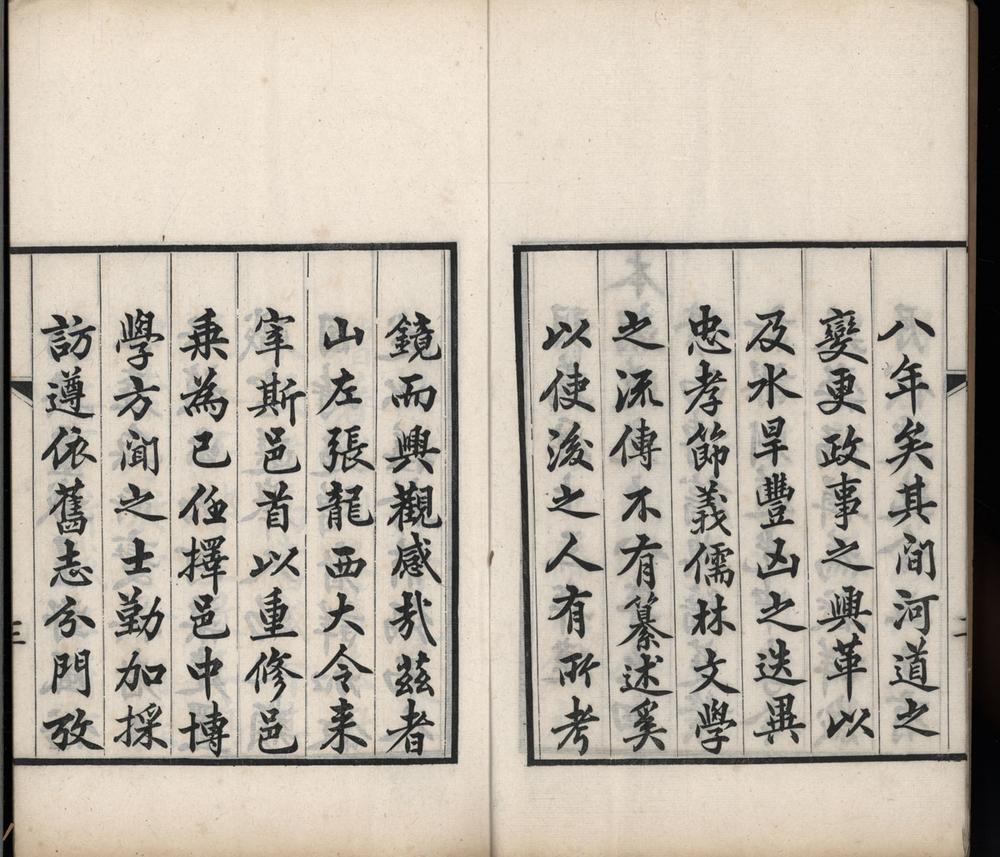 八年矣其間河道之
變更政事之興革以
及水旱豐凶之迭異
忠孝節義儒林文學
之流傳不有纂述奚
以使後之人有所考
鏡而興觀感哉茲者
山左張龍西大令来
宰斯邑首以重修邑
乗為已任擇邑中博
學方聞之士勤加採
訪遵依舊志分門攷
三